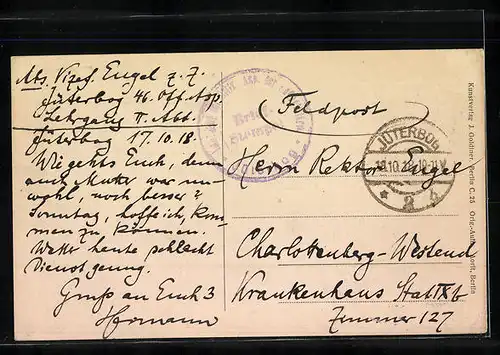 Abs. Vizef. Engel z. Z.
Jüterbog 46. Off. Asp.
Lehrgang II. Abt.
Jüterbog 17.10.18.
Wie gehts Euch, denn
auch Mutter war un-
wohl, noch besser?
Sonntag, hoffe ich, kom-
men zu können.
Wetter heute schlecht
Dienst genug.
Gruß an Euch 3
Hermann
Brief
Stempel
(Feldpost)
JÜTERBOG
Herrn Rektor Engel
Charlottenburg-Westend
Krankenhaus Stat. IX b
Zimmer 127
Kunstverlag J. Goldiner, Berlin C. 25
Berlin